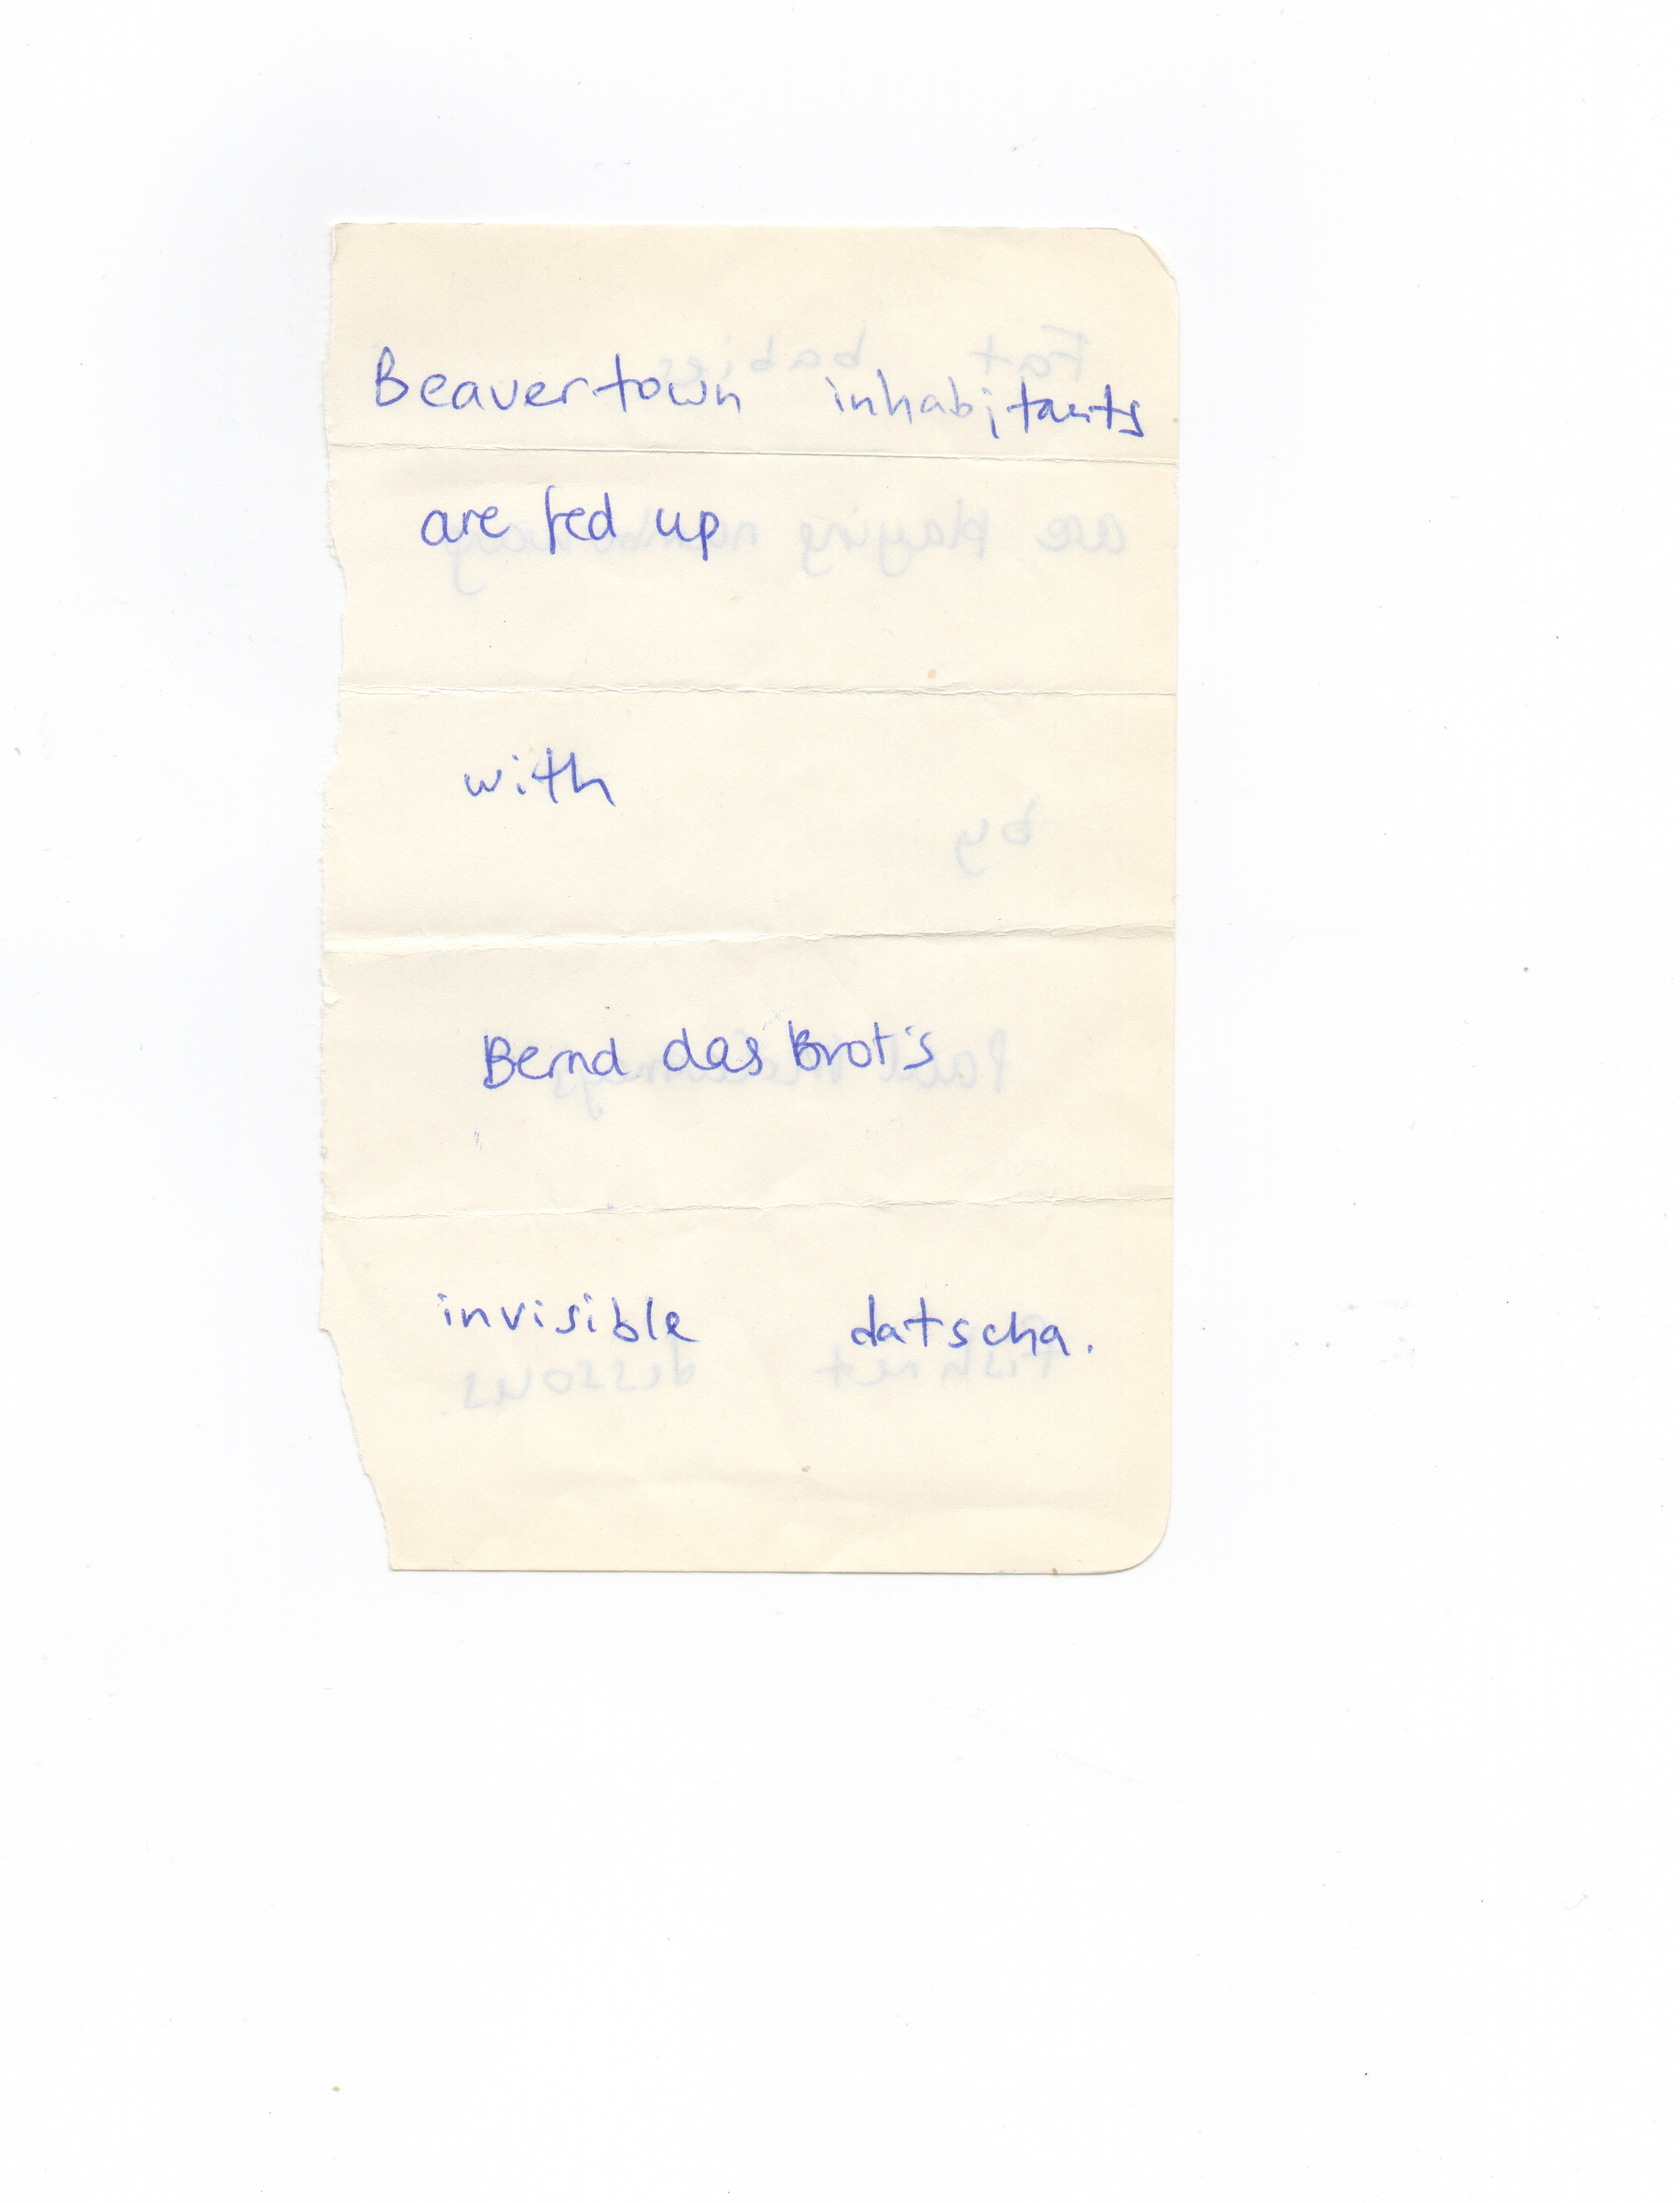 Beavertown inhabitants
are fed up
with
Bernd das Brot's
invisible datscha.